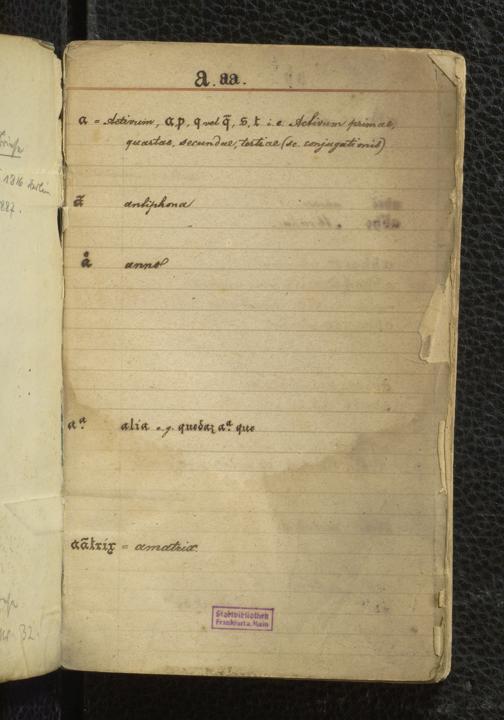 a. aa.
a = Activum, a p, q vel q̄, s, t i. e. Activum primae,
quartae, secundae, tertiae (sc. conjugationis)
ā antiphona
å anno
aª. alia e. g. quedaʒ aª que
aātrix = amatrix.
Stadtbibliothek
Frankfurt a. Main
1816 Berlin
1887.
32.